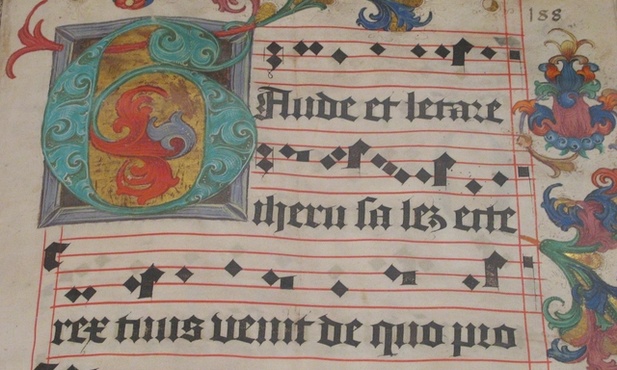 188
Gaude et letare
iheru sa lez ecce
rex tuus venit de quo pro